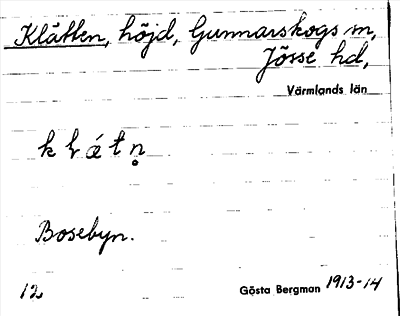 Klätten, höjd, Gunnarskogs sn,
Jösse hd,
Värmlands län
k ɽ ǽ t n̥
Bosebyn.
12. Gösta Bergman 1913-14